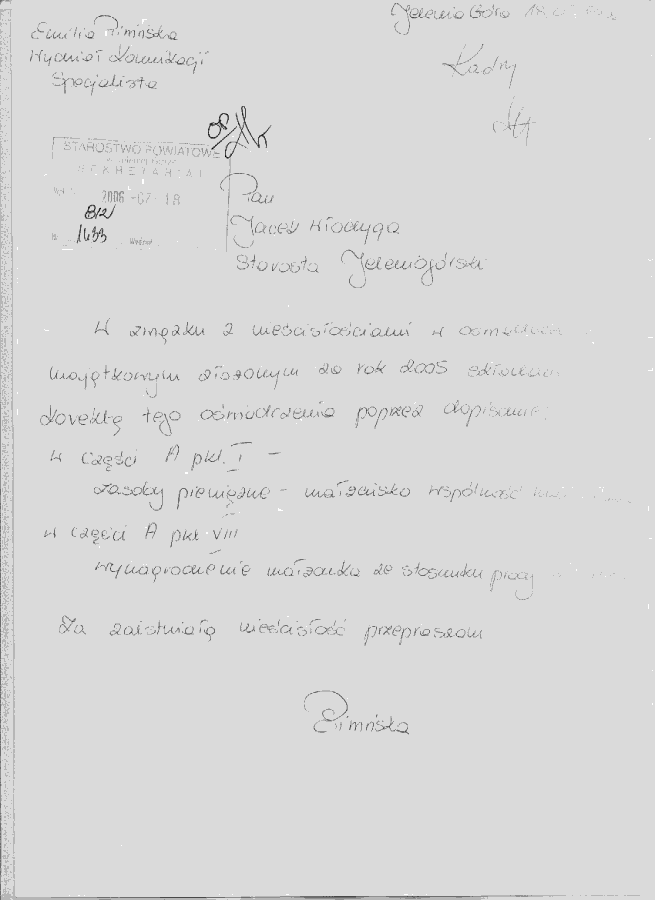 Jelenia Góra
Emilia
Wydział Komunikacji
Specjalista
Kadry
STAROSTWO POWIATOWE
SEKRETARIAT
2006 -07- 18
1433
Pan
Jacek Włodyga
Starosta Jeleniogórski
W związku z nieścisłościami w
majątkowym złożonym za rok 2005
korektę tego oświadczenia poprzez dopisanie:
w części A pkt. I -
zasoby pieniężne - małżeńska wspólność
w części A pkt VIII
wynagrodzenie małżonka ze stosunku pracy
Za zaistniałą nieścisłość przepraszam